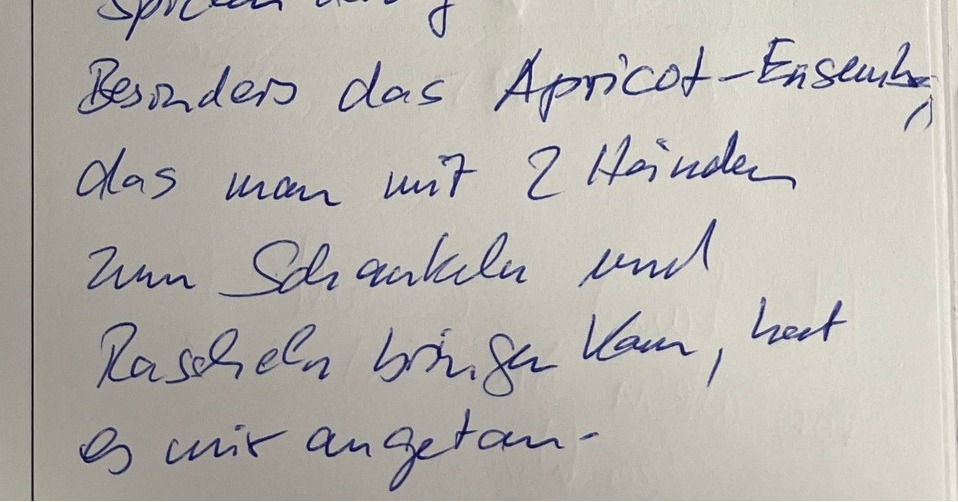 Besonders das Apricot-Ensemble,
das man mit 2 Händen
zum Schaukeln und
Rascheln bringen kann, hat
es mir angetan.